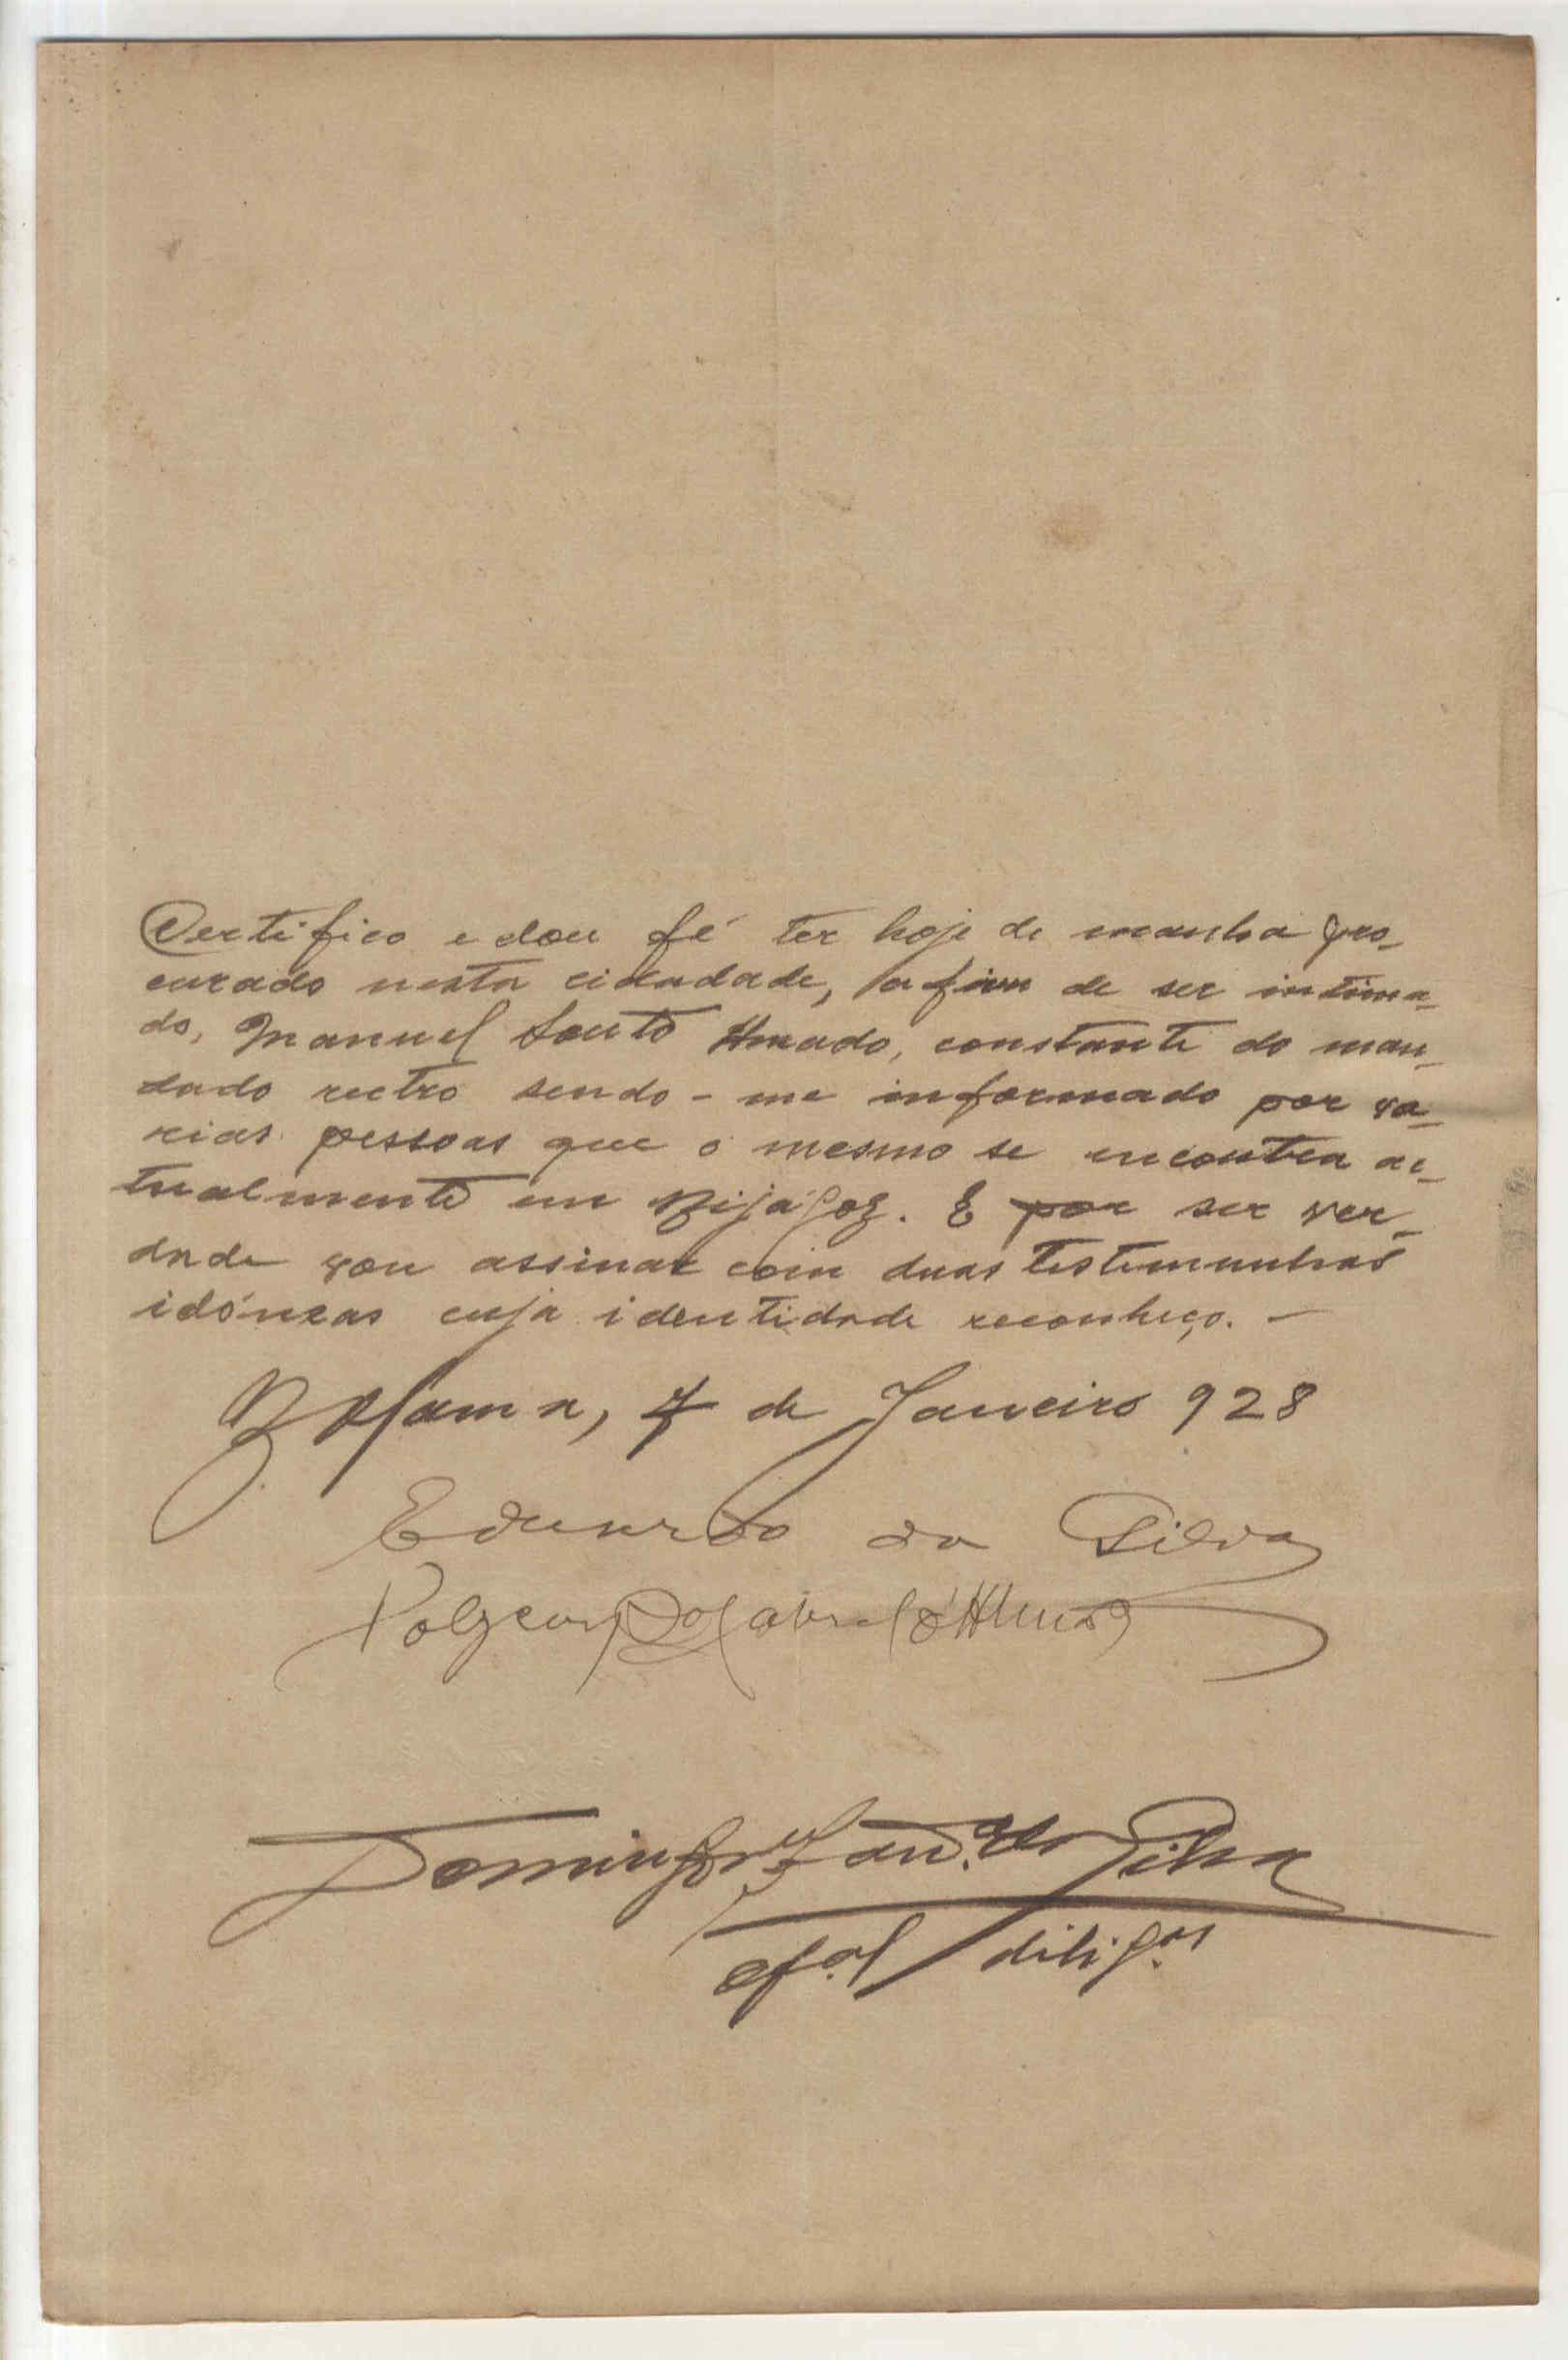 Certifico e dou fé ter hoje de manha pro-
curado nesta cidadade, a fim de ser intima-
do, Manuel Souto Amado, constante do man-
dado rectro sendo-me informado por va-
rias pessoas que o mesmo se encontra ac-
tualmente em Bijágoz. E por ser ver-
dade vou assinar com duas testemunhas
idóneas cuja identidade reconheço. —
Bolama, 7 de Janeiro 928
Eduardo da Silva
Policarpo Cabral d'Almada
Domingos da Silva
of.al dilig.as